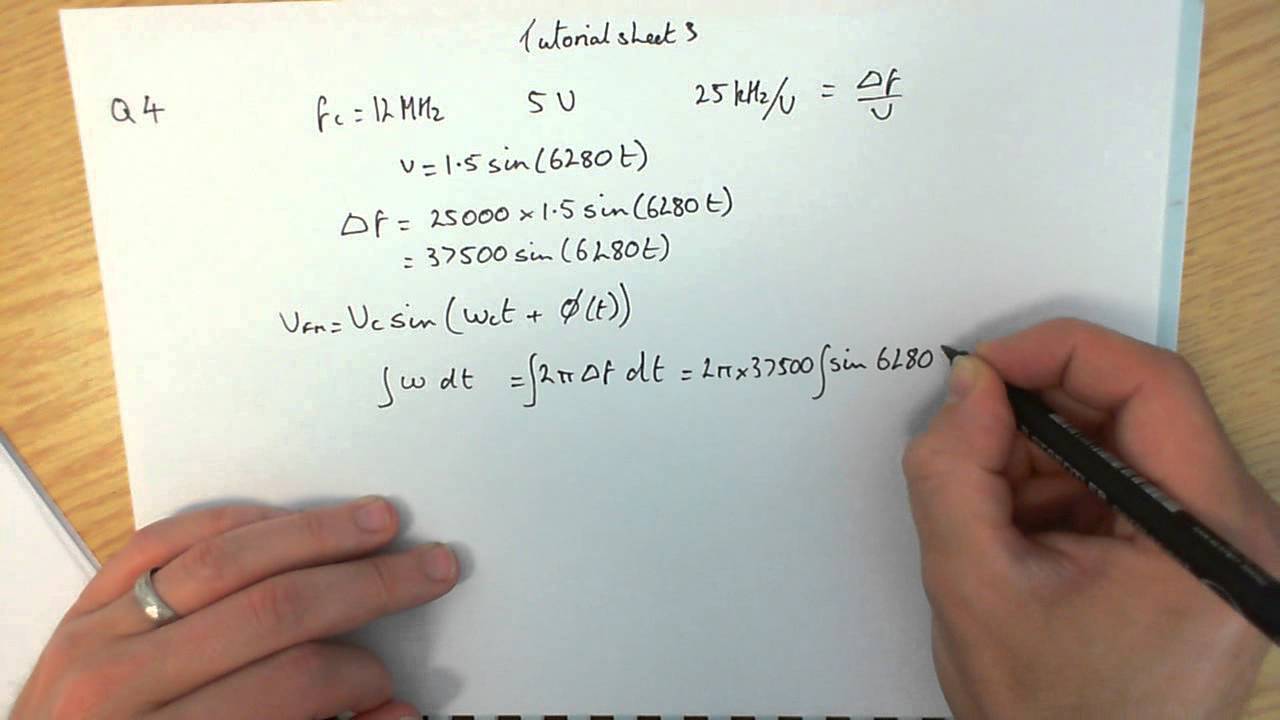 Tutorial sheet 3
Q4 fc = 12 MHz 5 V 25 kHz/V = Δf/V
v = 1.5 sin(6280t)
Δf = 25000 × 1.5 sin(6280t)
= 37500 sin(6280t)
VFM = Vc sin(ωct + ϕ(t))
∫ω dt = ∫2π Δf dt = 2π×37500 ∫sin 6280